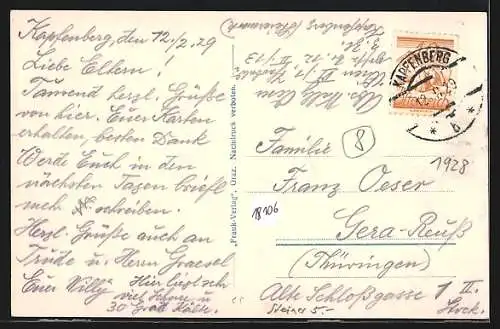 Kapfenberg, den 12./2.29
Liebe Eltern
Tausend herzl. Grüße
von hier. Euer Karten
erhalten, besten Dank
Werde Euch in den
nächsten Tagen brieflich
schreiben.
Herzl. Grüße auch an
Trude u. Herrn Graesel
Euer Willy Hier liegt sehr
viel Schnee u.
30 Grad Kälte.
"Frank-Verlag", Graz. Nachdruck verboten.
Kapfenberg (Steiermark)
Wien
KAPFENBERG
1 * b *
8
Familie
1928
Franz Oeser
18106
Gera-Reuß
(Thüringen)
Alte Schloßgasse 1 II.
Stock.
5.-